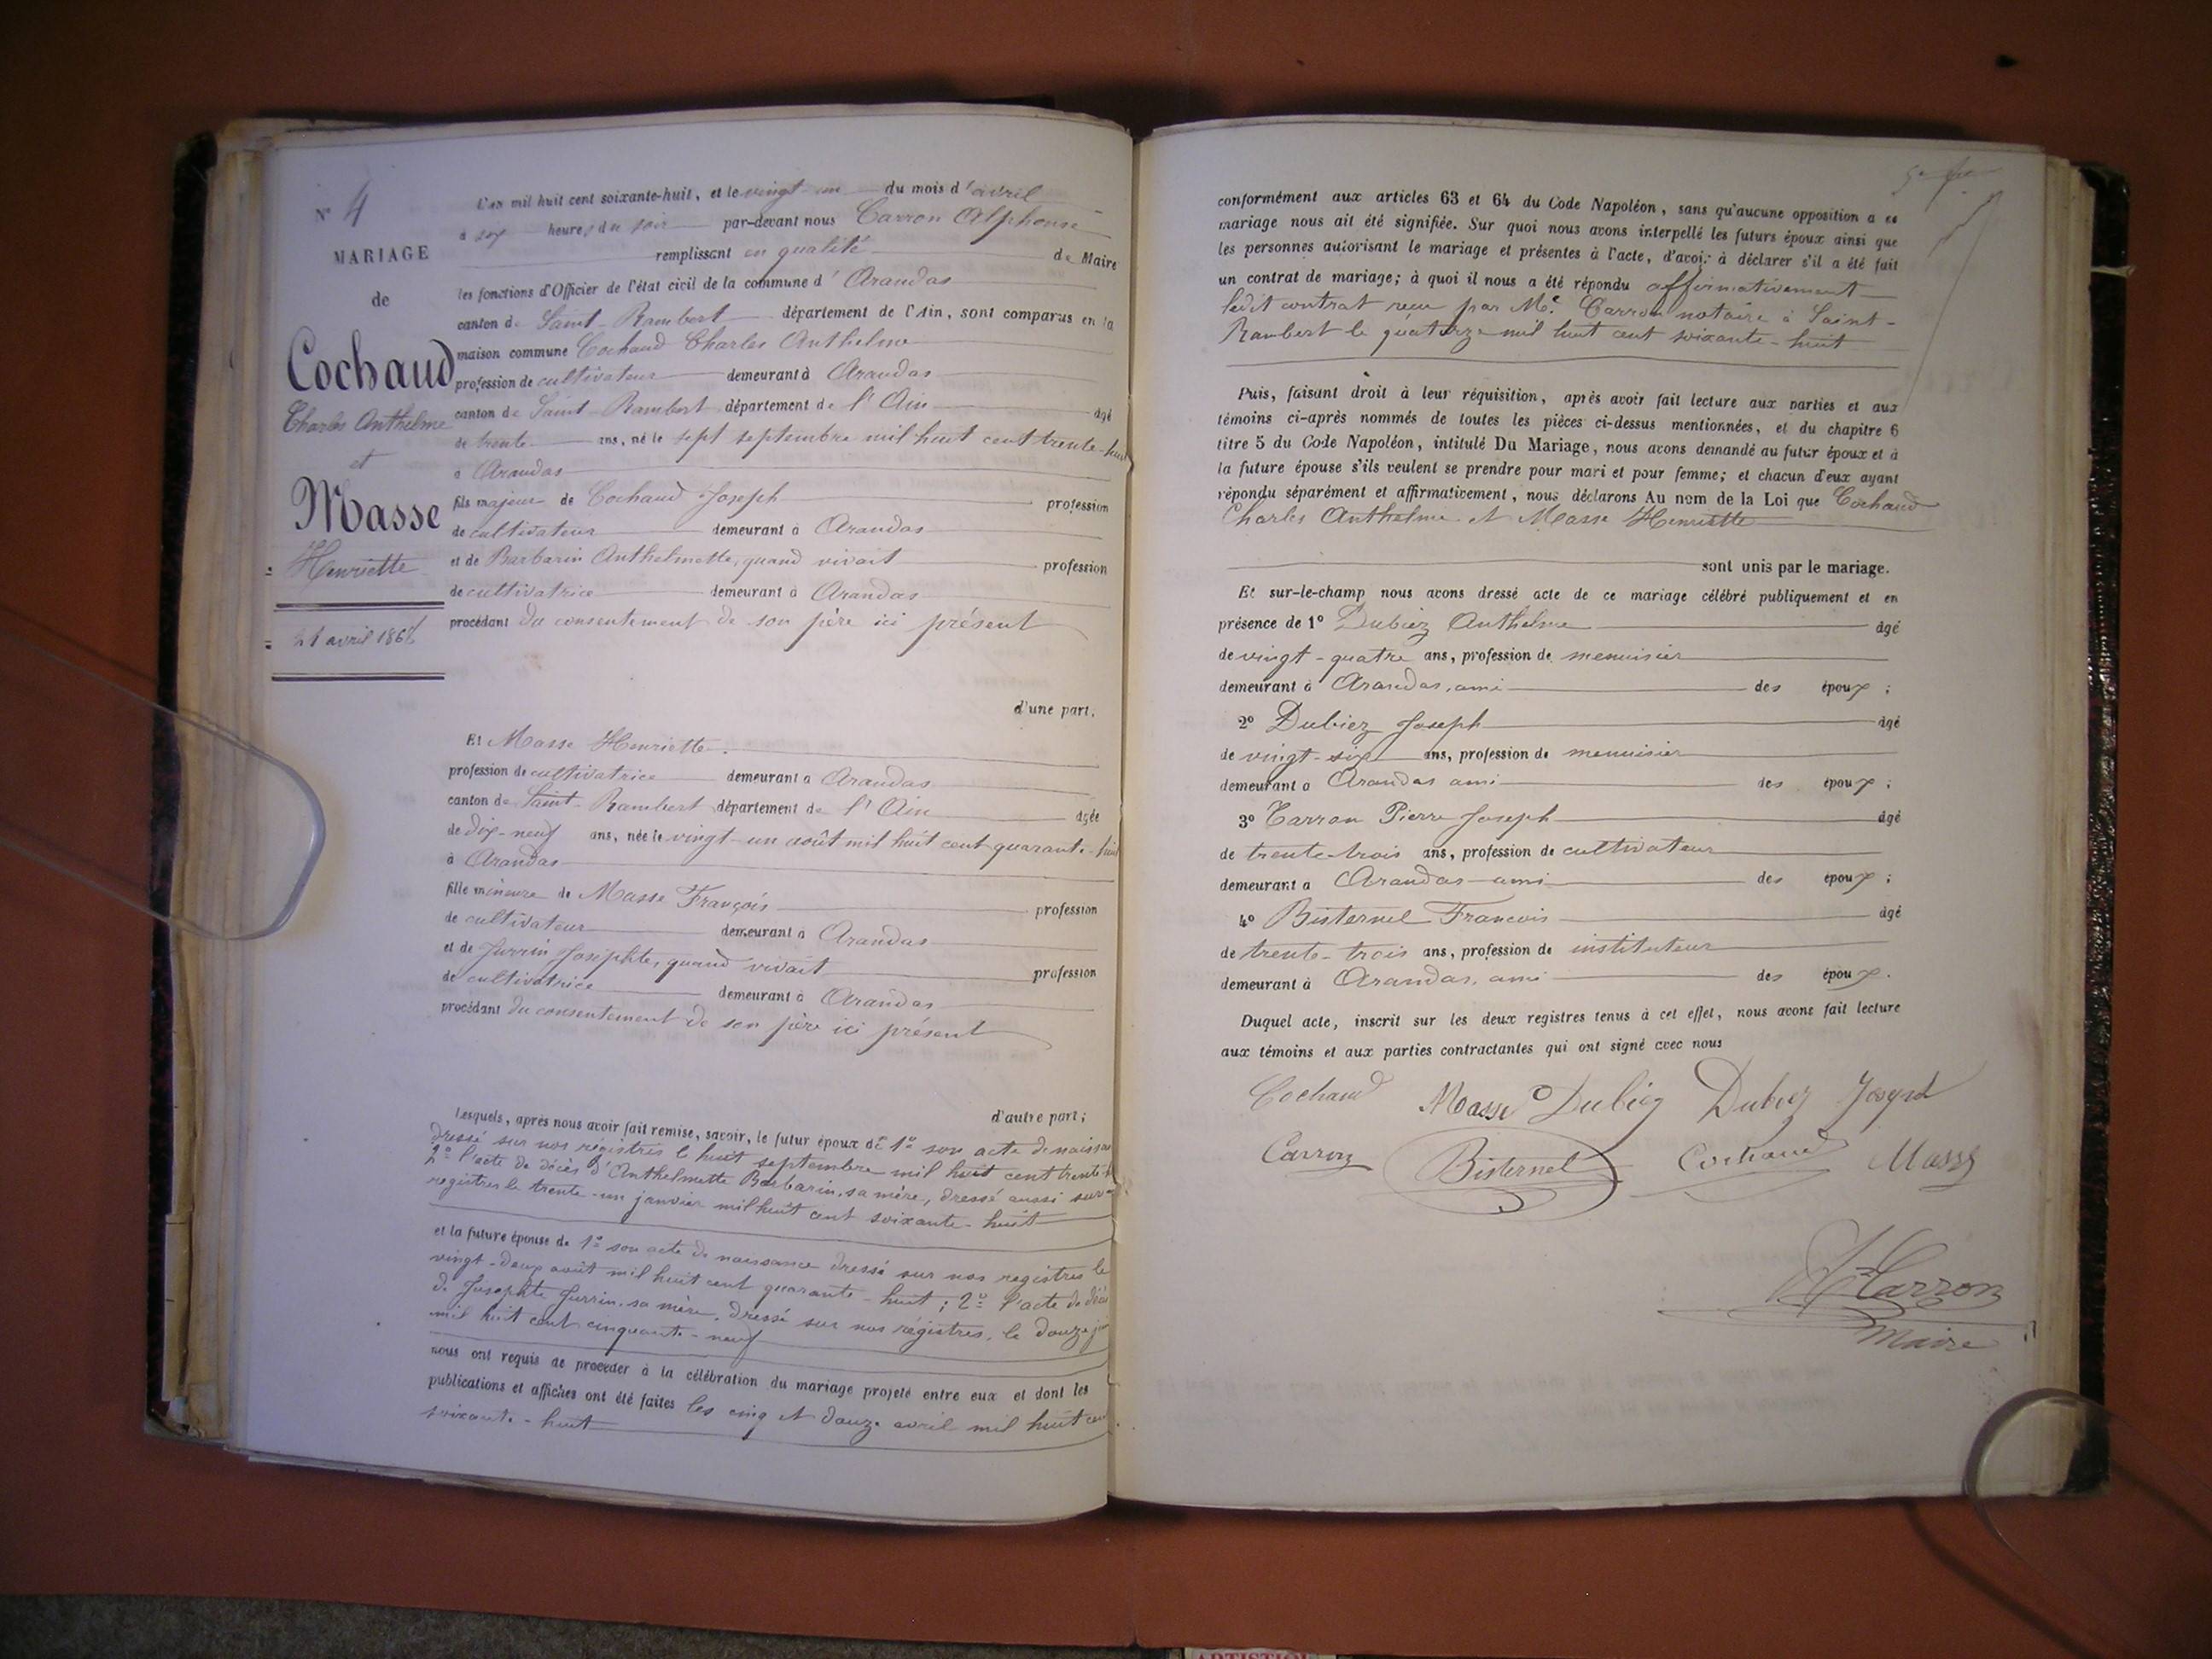 N° 4
MARIAGE
de
Cochaud
Charles Anthelme
et
Masse
Henriette
21 avril 1868
L'an mil huit cent soixante-huit, et le vingt-un du mois d'avril
à six heures du soir par-devant nous Carron Alphonse
remplissant en qualité de Maire
les fonctions d'Officier de l'état civil de la commune d'Arandas
canton de Saint-Rambert département de l'Ain, sont comparus en la
maison commune Cochaud Charles Anthelme
profession de cultivateur demeurant à Arandas
canton de Saint-Rambert département de l'Ain âgé
de trente ans, né le sept septembre mil huit cent trente-huit
à Arandas
fils majeur de Cochaud Joseph profession
de cultivateur demeurant à Arandas
et de Barbarin Anthelmette, quand vivait profession
de cultivatrice demeurant à Arandas
procédant du consentement de son père ici présent
d'une part;
Et Masse Henriette.
profession de cultivatrice demeurant à Arandas
canton de Saint-Rambert département de l'Ain âgée
de dix-neuf ans, née le vingt-un août mil huit cent quarante-huit
à Arandas
fille mineure de Masse François profession
de cultivateur demeurant à Arandas
et de Jurrin Josephte, quand vivait profession
de cultivatrice demeurant à Arandas
procédant du consentement de son père ici présent
d'autre part;
Lesquels, après nous avoir fait remise, savoir, le futur époux de 1° son acte de naissance
dressé sur nos régistres le huit septembre mil huit cent trente-h
2° l'acte de décès d'Anthelmette Barbarin, sa mère, dressé aussi sur
registres le trente-un janvier mil huit cent soixante-huit
et la future épouse de 1° son acte de naissance dressé sur nos registres le
vingt-deux août mil huit cent quarante-huit; 2° l'acte de décès
de Josephte Jurrin, sa mère, dressé sur nos régistres, le douze
mil huit cent cinquante-neuf
nous ont requis de procéder à la célébration du mariage projeté entre eux et dont les
publications et affiches ont été faites les cinq et douze avril mil huit cent
soixante-huit
conformément aux articles 63 et 64 du Code Napoléon, sans qu'aucune opposition a ce
mariage nous ait été signifiée. Sur quoi nous avons interpellé les futurs époux ainsi que
les personnes autorisant le mariage et présentes à l'acte, d'avoir à déclarer s'il a été fait
un contrat de mariage; à quoi il nous a été répondu affirmativement
ledit contrat reçu par Me. Carron notaire à Saint-
Rambert le quatorze mil huit cent soixante-huit
Puis, faisant droit à leur réquisition, après avoir fait lecture aux parties et aux
témoins ci-après nommés de toutes les pièces ci-dessus mentionnées, et du chapitre 6
titre 5 du Code Napoléon, intitulé Du Mariage, nous avons demandé au futur époux et à
la future épouse s'ils veulent se prendre pour mari et pour femme; et chacun d'eux ayant
répondu séparément et affirmativement, nous déclarons Au nom de la Loi que Cochaud
Charles Anthelme et Masse Henriette
sont unis par le mariage.
Et sur-le-champ nous avons dressé acte de ce mariage célébré publiquement et en
présence de 1° Dubiez Anthelme âgé
de vingt-quatre ans, profession de menuisier
demeurant à Arandas, ami des époux;
2° Dubiez Joseph âgé
de vingt-six ans, profession de menuisier
demeurant à Arandas ami des époux;
3° Carron Pierre Joseph âgé
de trente-trois ans, profession de cultivateur
demeurant à Arandas ami des époux;
4° Bisternel François âgé
de trente-trois ans, profession de instituteur
demeurant à Arandas, ami des époux.
Duquel acte, inscrit sur les deux registres tenus à cet effet, nous avons fait lecture
aux témoins et aux parties contractantes qui ont signé avec nous
Cochaud Masse Dubiez Dubiez Joseph
Carron Bisternel Cochaud Masse
Carron
Maire